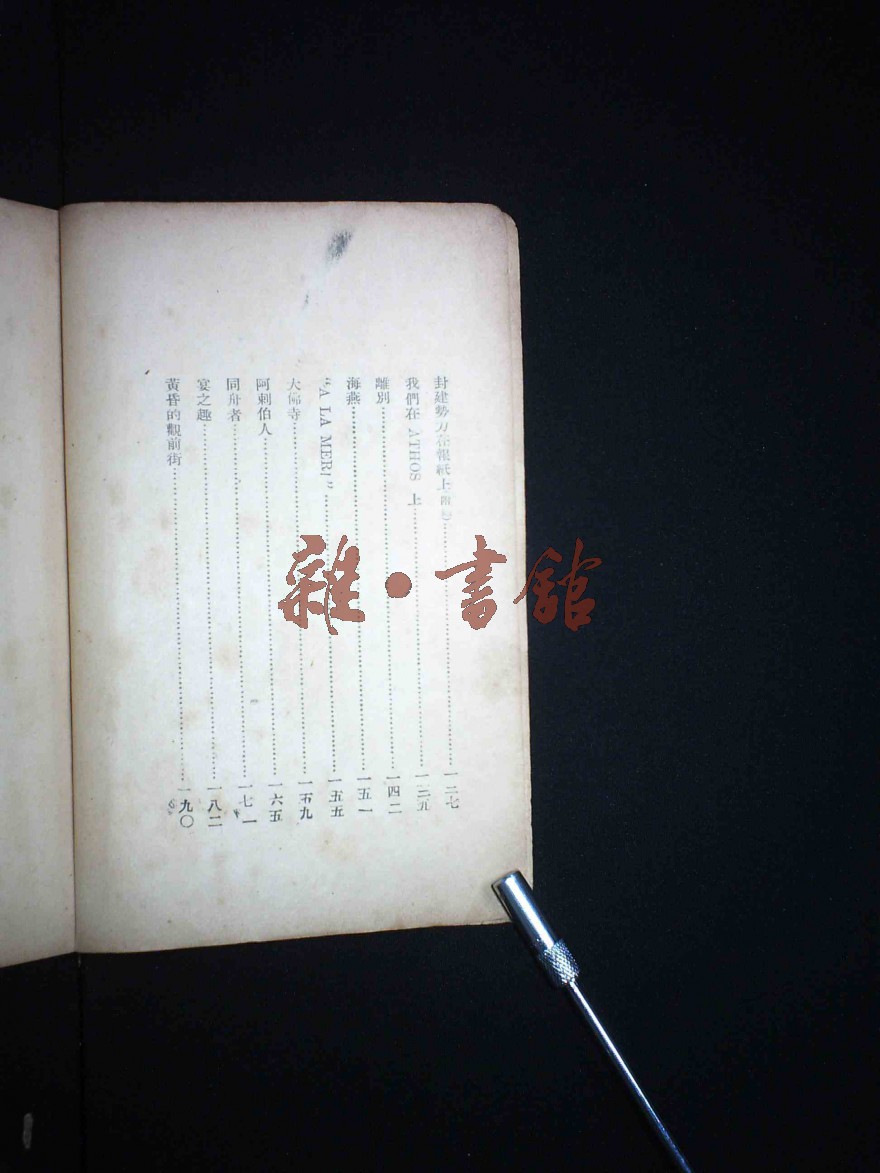 封建勢力在報紙上……一二七
我們在 ATHOS 上……一三九
離別……一四二
海燕……一五一
“A LA MER!”……一五五
大佛寺……一五九
阿剌伯人……一六五
同舟者……一七一
宴之趣……一八二
黃昏的觀前街……一九〇
雜·書館